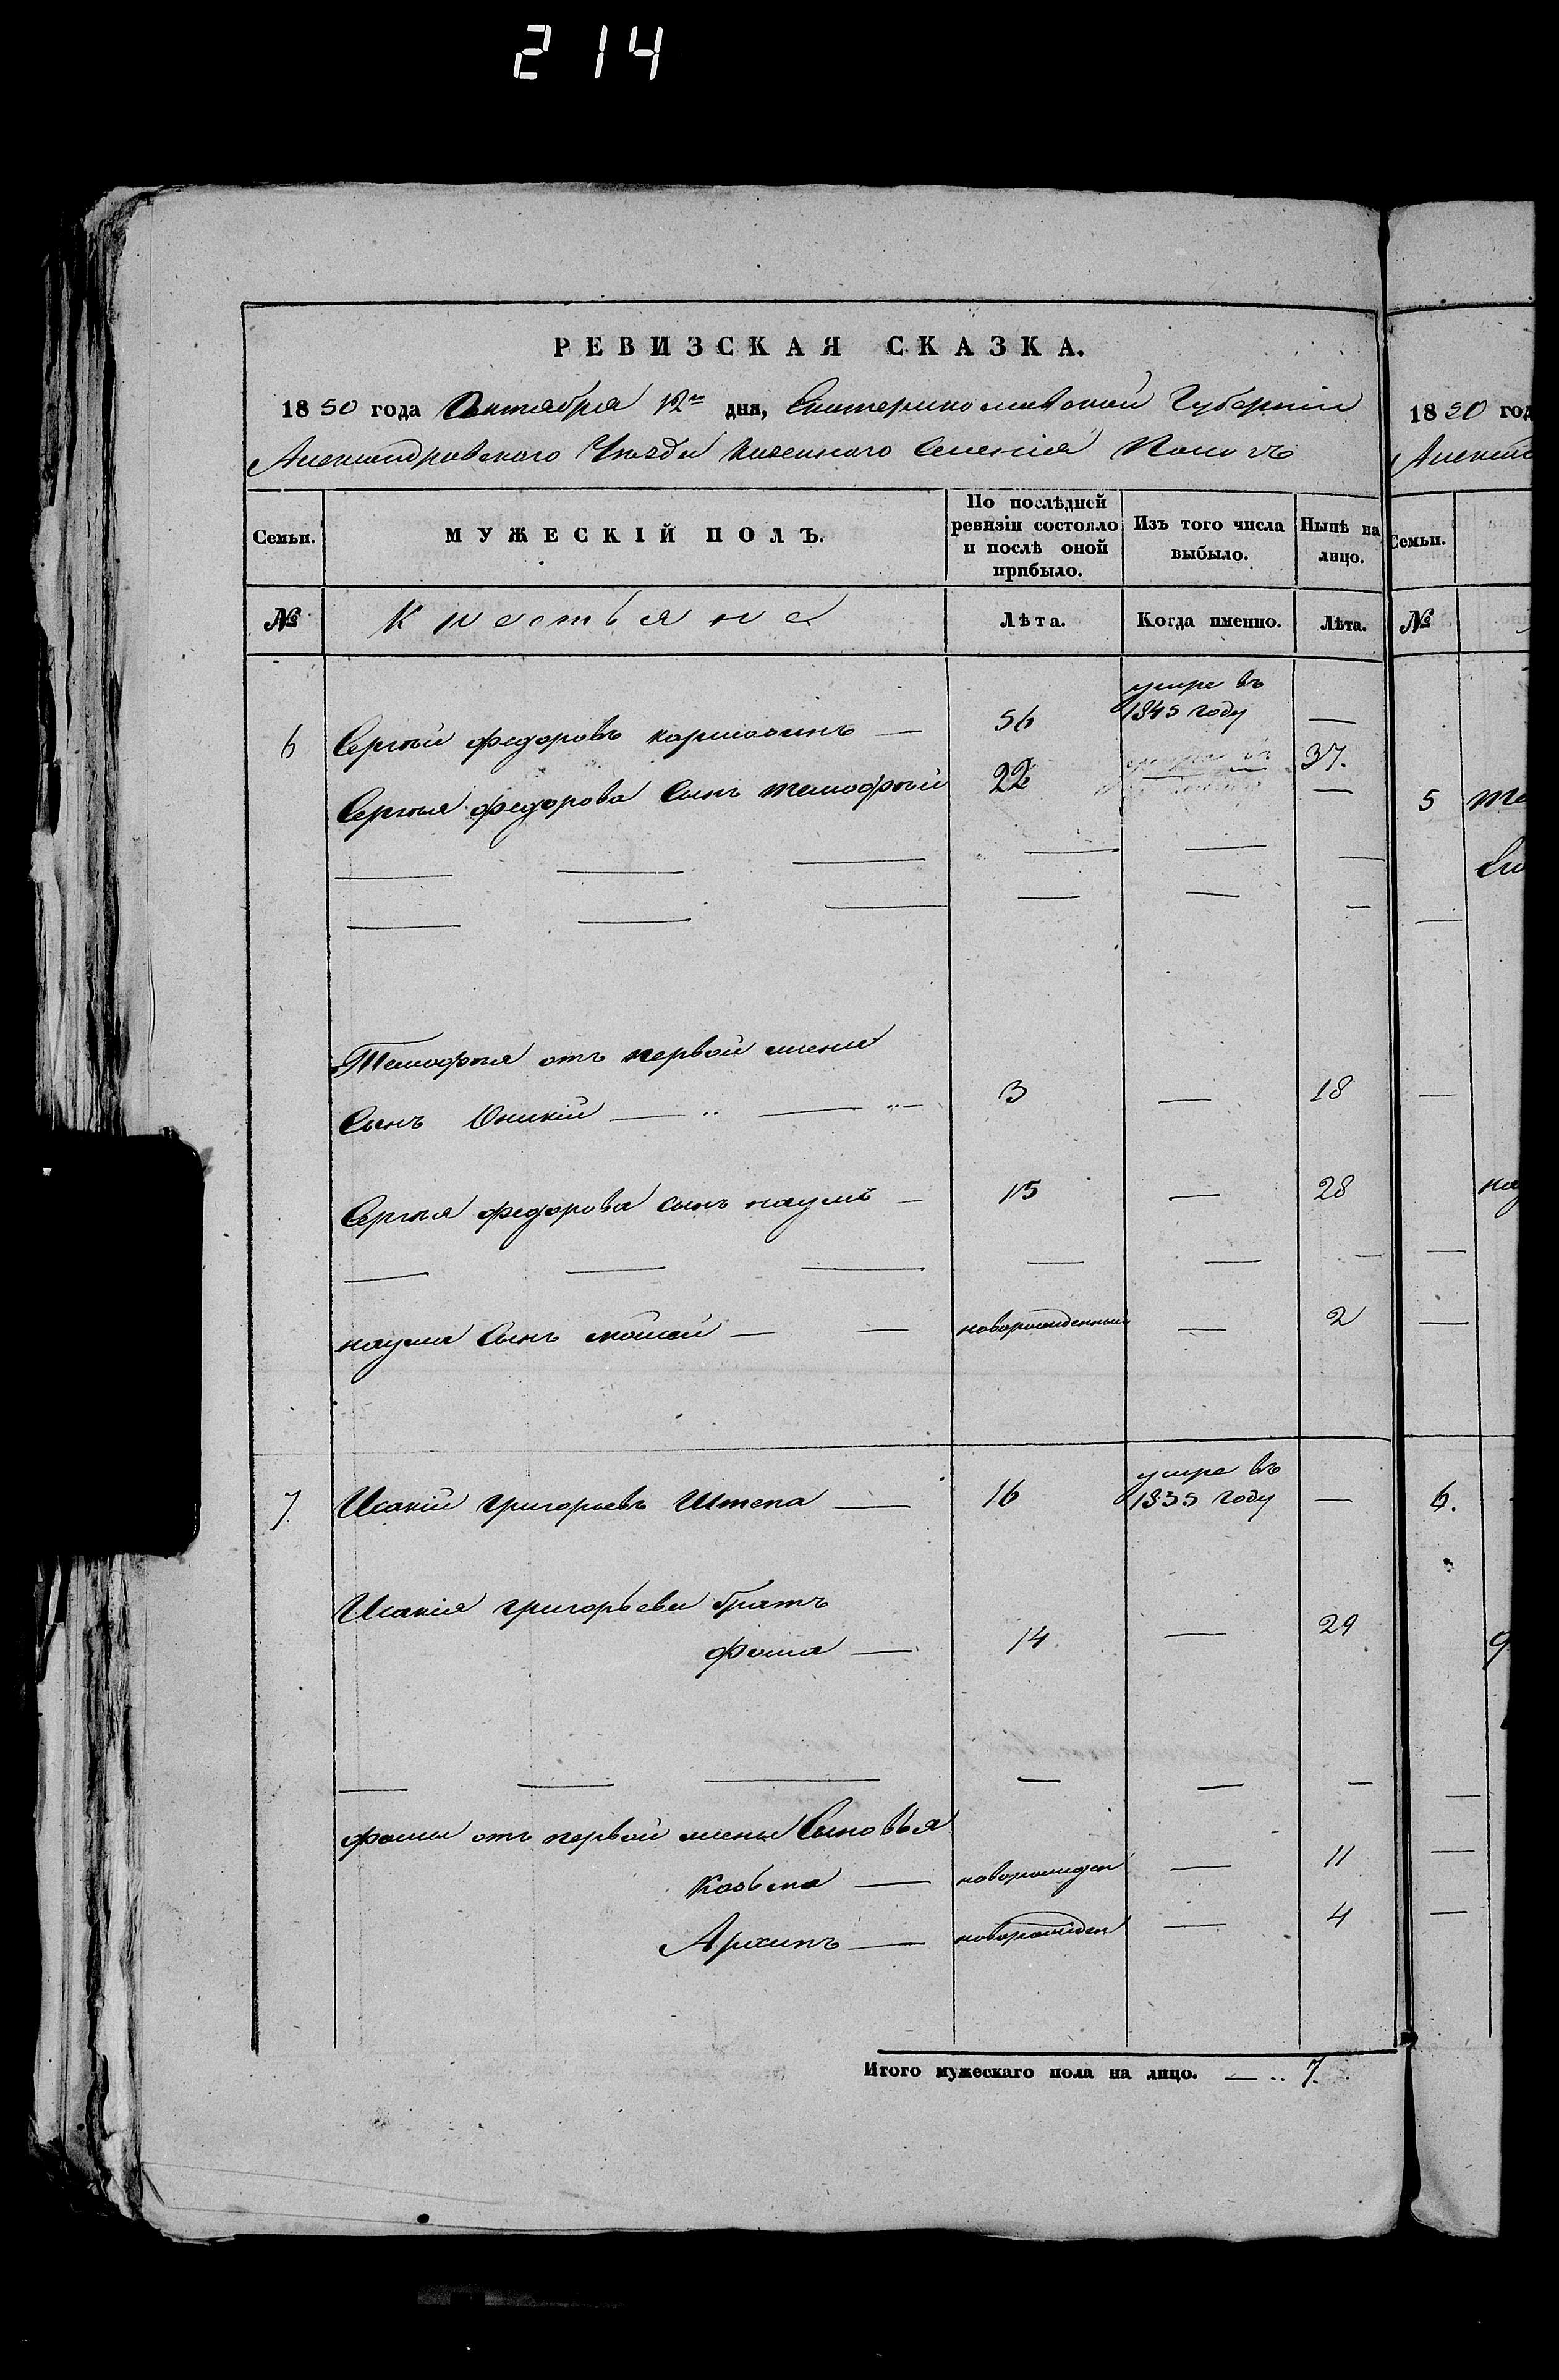 214
РЕВИЗСКАЯ СКАЗКА.
1850 года Октября 12го дня, Екатеринославской Губерніи
Александровскаго Уѣзда Казеннаго Селенія
Семьи. МУЖЕСКІЙ ПОЛЪ. По послѣдней ревизіи состояло и послѣ оной прибыло. Изъ того числа выбыло. Нынѣ на лицо.
№ Крестьяне Лѣта. Когда именно. Лѣта.
умре въ
6 Сергѣй Федоровъ 56 1845 году —
Сергѣя Федорова Сынъ Тимофѣй 22 37.
Тимофѣя отъ первой жены
Сынъ Оникій — 3 — 18
Сергѣя Федорова сынъ наумъ — 15 — 28
наума Сынъ — — новорожденный — 2
умре въ
7. Исакій григорьевъ Штепа — 16 1835 году —
Исакія григорьева братъ
Фома — 14. — 29
Фомы отъ первой жены Сыновья
Козьма — новорожден — 11
Архипъ — новорожден — 4
Итого мужескаго пола на лицо. — .. 7.
1850 год
Семьи.
№
5
6.